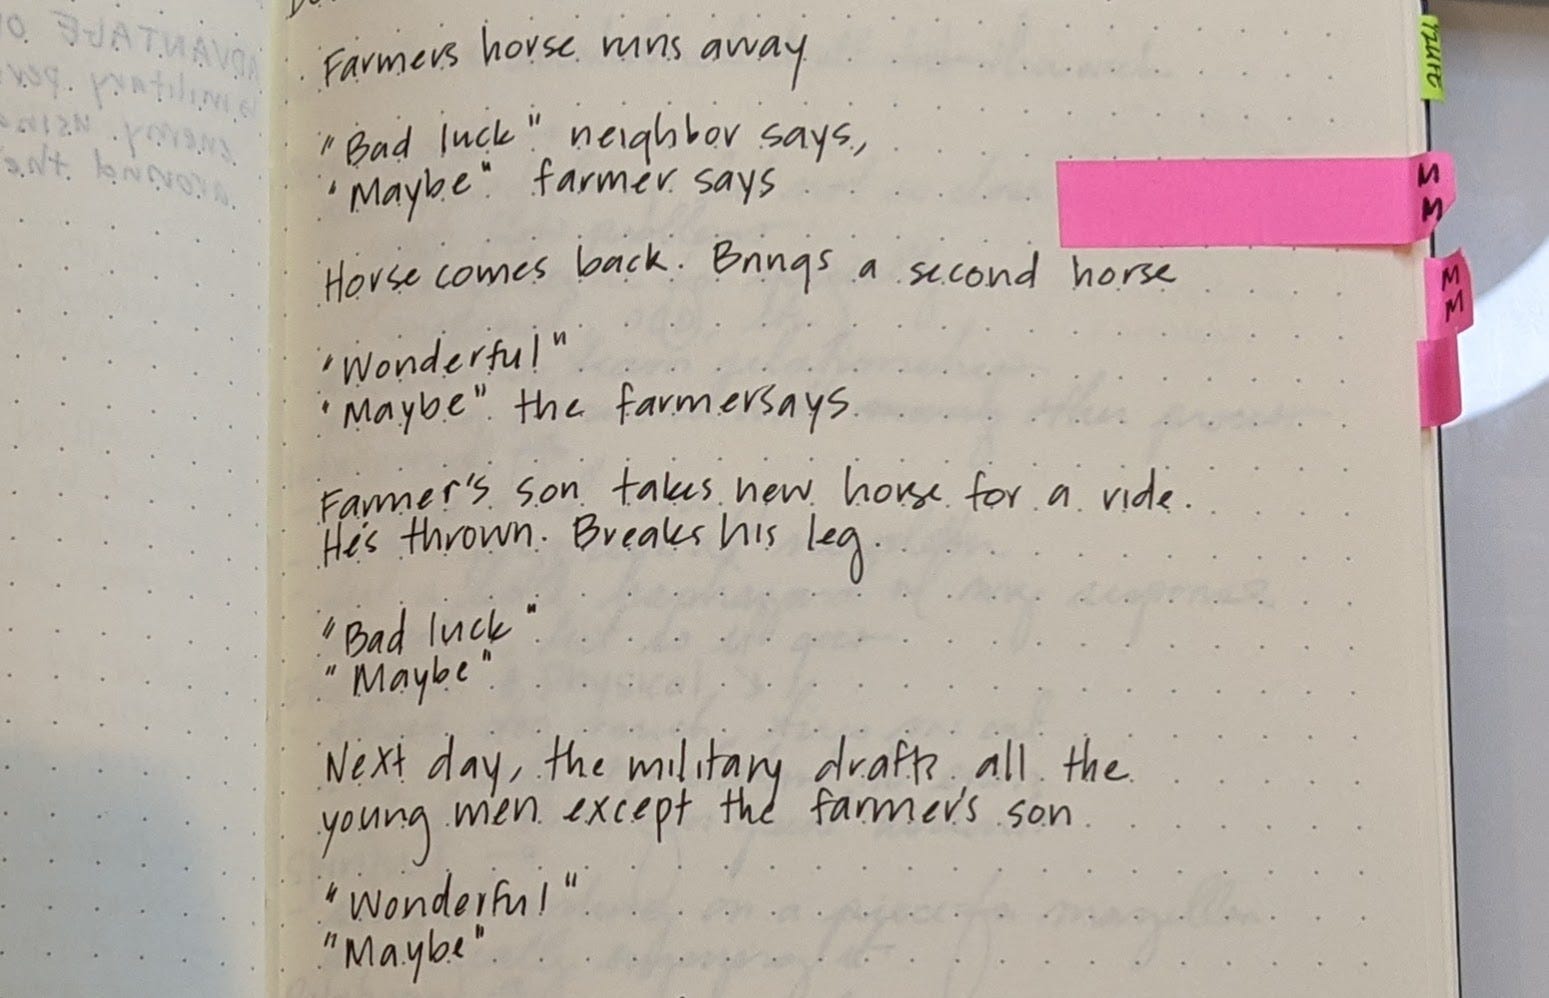 Farmers horse runs away
"Bad luck" neighbor says,
"Maybe" farmer says
Horse comes back. Brings a second horse
"Wonderful"
"Maybe" the farmer says.
Farmer's son takes new horse for a ride.
He's thrown. Breaks his leg.
"Bad luck"
"Maybe"
Next day, the military drafts all the
young men except the farmer's son
"Wonderful"
"Maybe"
ADVANTAGE
military
enemy using
around the
M
M